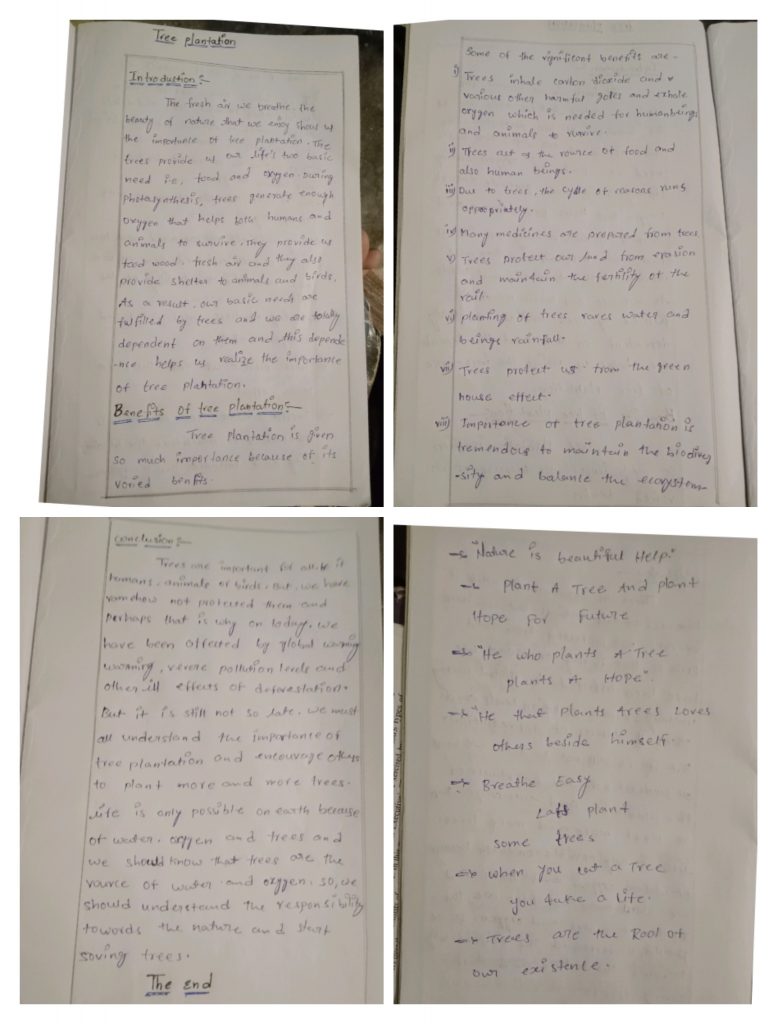 Tree plantation
Introduction:-
The fresh air we breathe the
beauty of nature that we enjoy shows us
the importance of tree plantation. The
trees provide us our life's two basic
need i.e, food and oxygen. During
photosynthesis, trees generate enough
oxygen that helps both humans and
animals to survive. They provide us
food wood, fresh air and they also
provide shelter to animals and birds.
As a result, our basic needs are
fulfilled by trees and we are totally
dependent on them and this depende
-nce helps us realize the importance
of tree plantation.
Benefits of tree plantation:-
Tree Plantation is given
so much importance because of its
varied benfits.
Some of the significant benefits are-
i) Trees inhale carbon dioxide and
various other harmful gases and exhale
oxygen which is needed for humanbeings
and animals to survive.
ii) Trees act as the source of food and
also human beings.
iii) Due to trees, the cycle of seasons runs
appropriately.
iv) Many medicines are prepared from trees
v) Trees protect our land from erosion
and maintain the fertility of the
soil.
vi) planting of trees saves water and
beings rainfall.
vii) Trees protect us from the green
house effect.
viii) Importance of tree plantation is
tremendous to maintain the biodiver
-sity and balance the ecosystem
conclusion:-
Trees are important for all it
humans, animals or birds. But, we have
somehow not protected them and
perhaps that is why on today, we
have been affected by global warming
warming, severe pollution levels and
other ill effects of deforestation.
But it is still not so late. we must
all understand the importance of
tree plantation and encourage others
to plant more and more trees.
Life is only possible on earth because
of water, oxygen and trees and
we should know that trees are the
source of water and oxygen. so, we
should understand the responsibility
towards the nature and start
saving trees.
The end
"Nature is beautiful Help."
Plant A Tree And plant
Hope For Future
"He who plants A Tree
plants A Hope".
"He that plants trees Loves
others beside himself.
Breathe Easy
plant
some trees
when you cut a Tree
you take a Life.
Trees are the Root of
our existence.